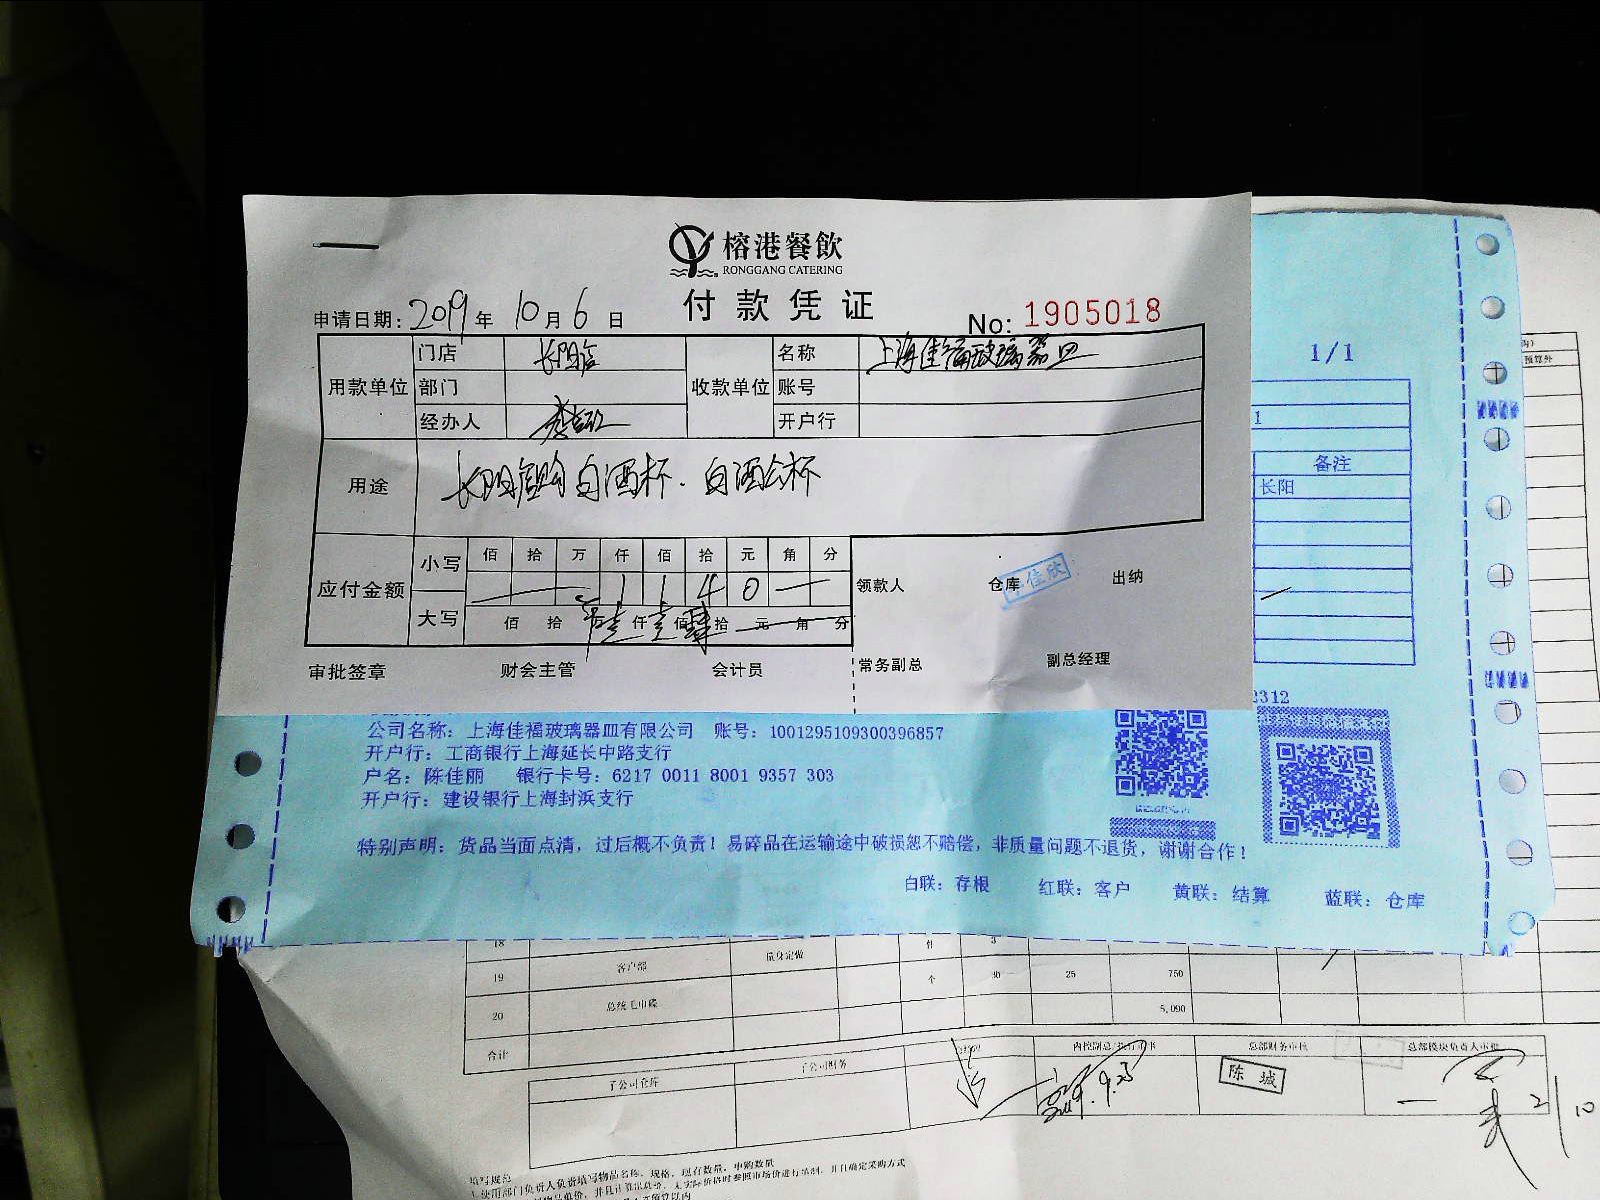 榕港餐飲
RONGGANG CATERING
付款凭证
申请日期：2019年10月6日
No: 1905018
用款单位 门店 长阳店 收款单位 名称 上海佳福玻璃器皿
部门 账号
经办人 开户行
用途 长阳店购白酒杯、白酒公杯
应付金额 小写 佰 拾 万 仟 佰 拾 元 角 分
1 1 4 0
大写 佰 拾 仟 佰 拾 元 角 分
壹 壹 肆
领款人 仓库 佳欣 出纳
审批签章 财会主管 会计员 常务副总 副总经理
1/1
1
备注
长阳
2312
公司名称：上海佳福玻璃器皿有限公司 账号：1001295109300396857
开户行：工商银行上海延长中路支行
户名：陈佳丽 银行卡号：6217 0011 8001 9357 303
开户行：建设银行上海封浜支行
特别声明：货品当面点清，过后概不负责！易碎品在运输途中破损恕不赔偿，非质量问题不退货，谢谢合作！
白联：存根 红联：客户 黄联：结算 蓝联：仓库
预算外
18 件 3
19 客户部 量身定做 个 30 25 750
20 总统毛巾碟 5,090
合计
子公司仓库 子公司财务 总部财务审核 总部模块负责人审批
2019.9.25
陈城
21/10
填写规范